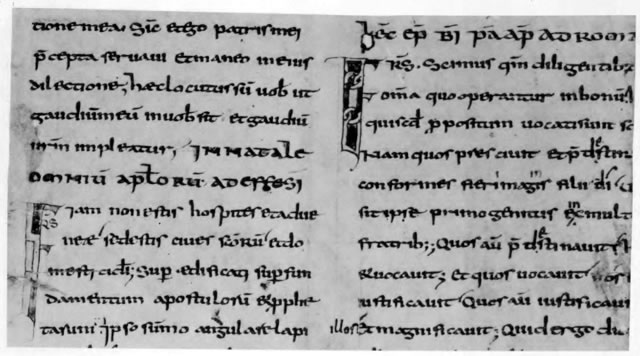 tione mea. Sic et ego patris mei
p̄cepta servavi et maneo in eius
dilectione; hęc locutus sū vob̄ ut
gaudiū meū in vob̄ sit et gaudiū
vr̄m impleatur; IN NATALE
OMNIŪ APLŌRŪ. AD EFFESI
FRS Iam non estis hospites et adve
nae sed estis cives sc̄orū et do
mestici dī; Sup̄ edificati sup̄ fun
damentum apostulorū et p̄phe
tarum ipso sūmo angulare lapi
Ł̄EC EP̄ B̄I PA̅ AP̄ AD ROM
FRS. Scimus qm̄ diligentib;
om̄a quo operantur in bonū.
qui scd̄ propositum vocati sunt sc
Nam quos prescivit et p̄destin
conformes fieri imaginis filii dī U
sit ipse primogenitus in mult
fratrib;; Quos aū p̄destinavit h
et vocavit; Et quos vocavit hos
iustificavit Quos aū iustificavi
illos et magnificavit; Quid ergo di